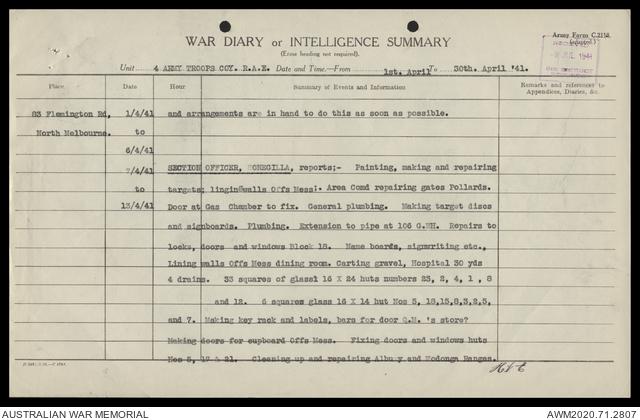 Army Form C.2118.
(Adapted.)
WAR DIARY or INTELLIGENCE SUMMARY
(Erase heading not required).
Unit 4 ARMY TROOPS COY. R.A.E. Date and Time—From 1st. April To 30th. April '41.
Place Date Hour Summary of Events and Information Remarks and references to Appendices, Diaries, &c.
83 Flemington Rd, 1/4/41 and arrangements are in hand to do this as soon as possible.
North Melbourne. to
6/4/41
7/4/41 SECTION OFFICER, BONEGILLA, reports;- Painting, making and repairing
to targets; lining walls Offs Mess: Area Comd repairing gates Pollards.
13/4/41 Door at Gas Chamber to fix. General plumbing. Making target discs
and signboards. Plumbing. Extension to pipe at 106 G.HH. Repairs to
locks, doors and windows Block 18. Name boards, signwriting etc.,
Lining walls Offs Mess dining room. Carting gravel, Hospital 30 yds
4 drains. 33 squares of glass1 16 X 24 huts numbers 23, 2, 4, 1 , 8
and 12. 6 squares glass 16 X 14 hut Nos 5, 18,15,8,3,2,5,
and 7. Making key rack and labels, bars for door Q.M. 's store?
Making doors for cupboard Offs Mess. Fixing doors and windows huts
Nos 5, 17 & 21. Cleaning up and repairing Albury and Wodonga Ranges.
AUSTRALIAN WAR MEMORIAL
AWM2020.71.2807